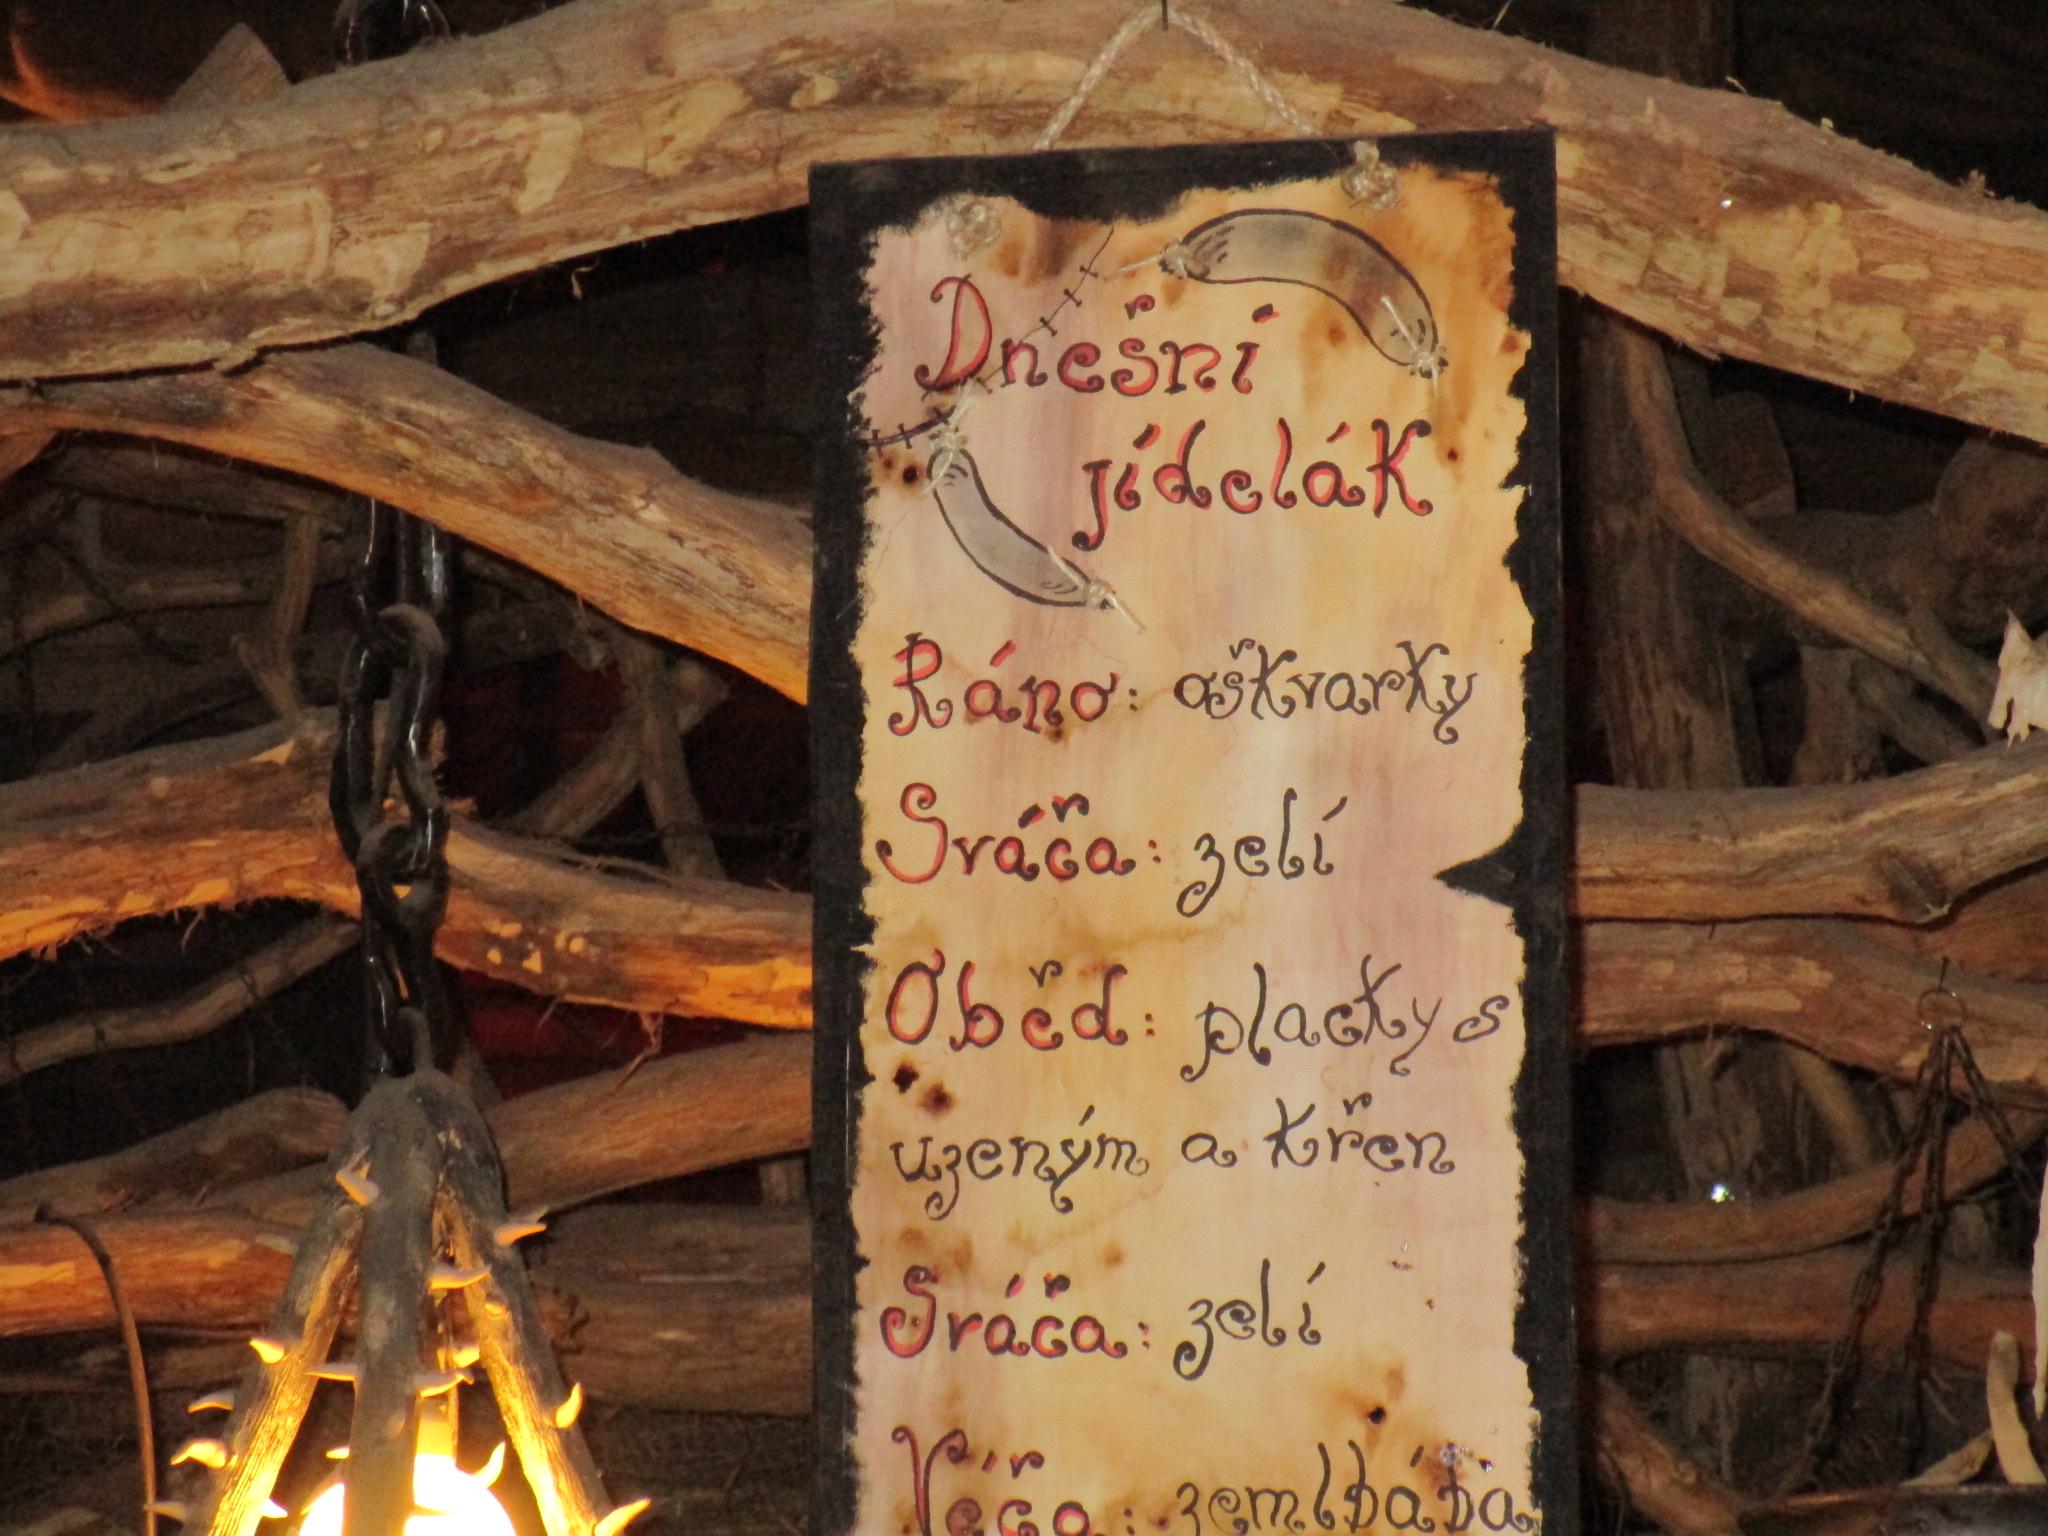 Dnešní
jídelák
Ráno: oškvarky
Sváča: zelí
Oběd: placky s
uzeným a křen
Sváča: zelí
Véča: zemlbába